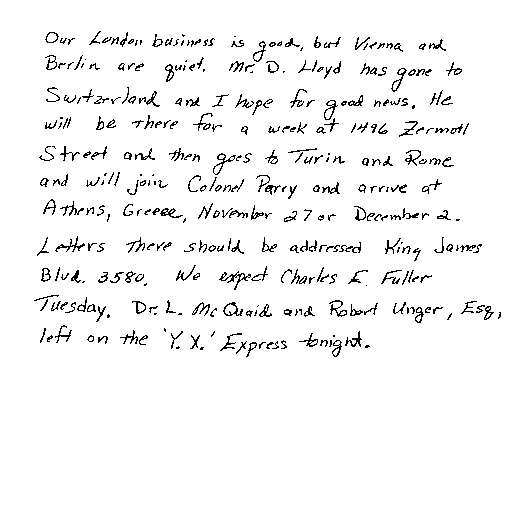 Our London business is good, but Vienna and
Berlin are quiet. Mr. D. Lloyd has gone to
Switzerland and I hope for good news. He
will be there for a week at 1496 Zermott
Street and then goes to Turin and Rome
and will join Colonel Parry and arrive at
Athens, Greece, November 27 or December 2.
Letters there should be addressed King James
Blvd. 3580. We expect Charles E. Fuller
Tuesday. Dr. L. McQuaid and Robert Unger, Esq,
left on the 'Y. X.' Express tonight.